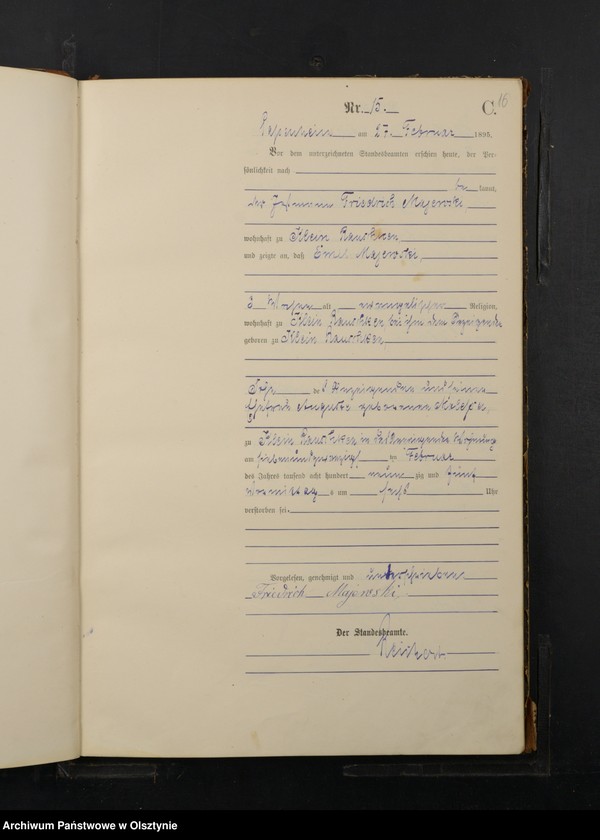 Nr. 15.
C.
16
am 27. Februar 1895.
Vor dem unterzeichneten Standesbeamten erschien heute, der Per-
sönlichkeit nach
be kannt,
der Friedrich Majewski,
wohnhaft zu Klein
und zeigte an, daß Emil Majewski,
3 Wochen alt, evangelischer Religion,
wohnhaft zu Klein bei ihm dem Anzeigenden
geboren zu Klein
Sohn des Anzeigenden und seiner
Ehefrau Auguste geborenen
zu Klein in des Anzeigenden Wohnung
am siebenundzwanzigsten Februar
des Jahres tausend acht hundert neun zig und fünf
Vormittags um fünf Uhr
verstorben sei.
Vorgelesen, genehmigt und unterschrieben
Friedrich Majewski
Der Standesbeamte.
Archiwum Państwowe w Olsztynie